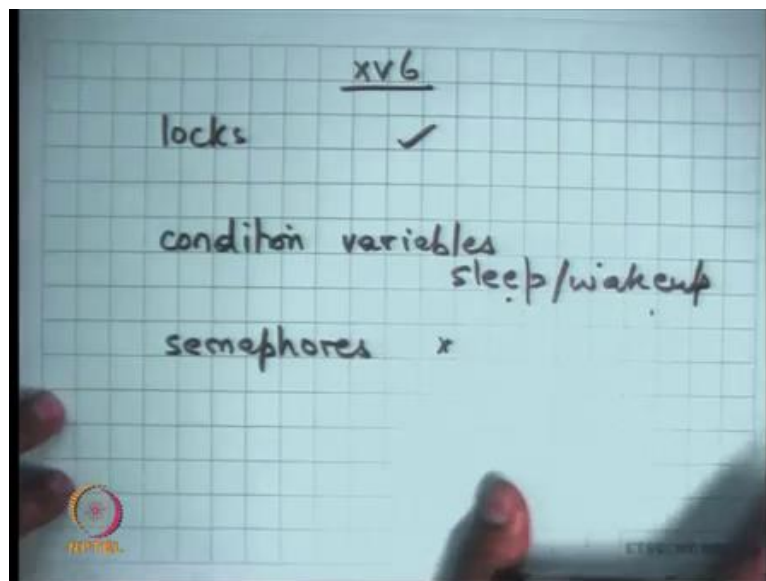 xv6
locks ✓
condition variables
sleep/wakeup
semaphores x
NPTEL